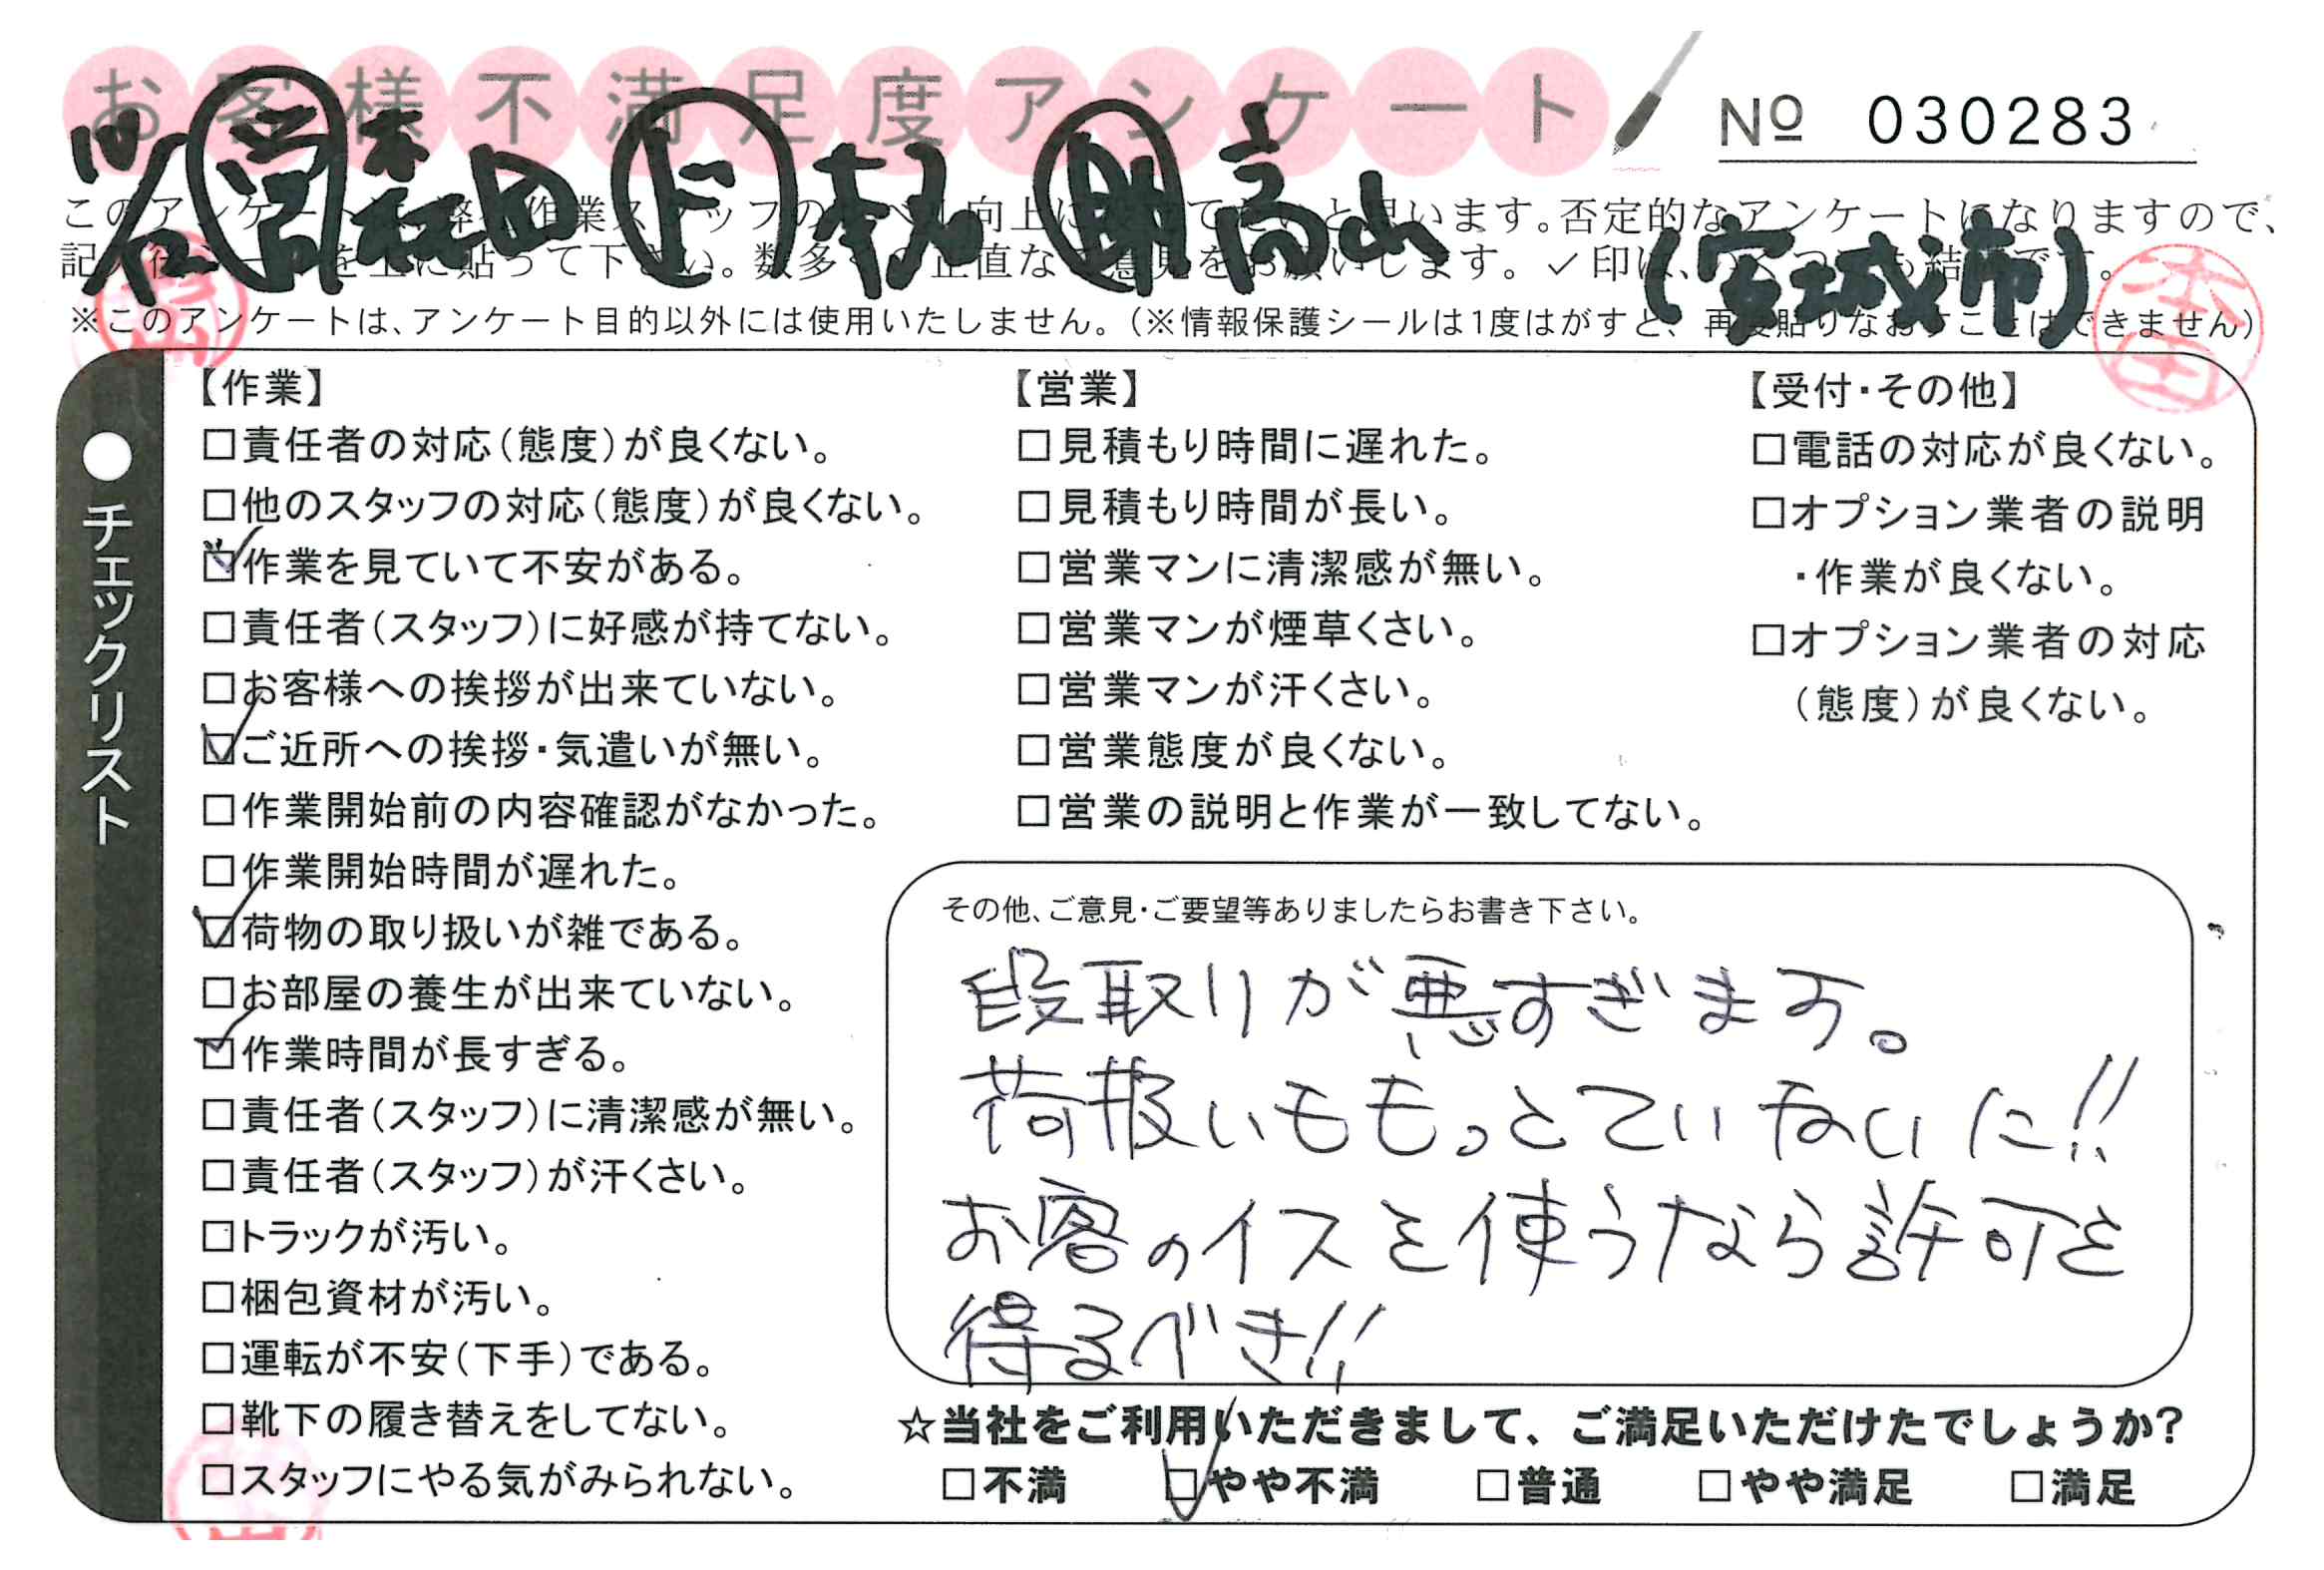 お客様不満足度アンケート
No 030283
営 森田 ド 松 助 高山 (安城市)
このアンケートは、弊社作業スタッフのレベル向上に役立てたいと思います。否定的なアンケートになりますので、
記入後シールを上に貼って下さい。数多くの正直なご意見をお願いします。✓印は、いくつでも結構です。
※このアンケートは、アンケート目的以外には使用いたしません。(※情報保護シールは1度はがすと、再度貼りなおすことはできません)
本田
●チェックリスト
【作業】
□責任者の対応(態度)が良くない。
□他のスタッフの対応(態度)が良くない。
☑作業を見ていて不安がある。
□責任者(スタッフ)に好感が持てない。
□お客様への挨拶が出来ていない。
☑ご近所への挨拶・気遣いが無い。
□作業開始前の内容確認がなかった。
□作業開始時間が遅れた。
☑荷物の取り扱いが雑である。
□お部屋の養生が出来ていない。
☑作業時間が長すぎる。
□責任者(スタッフ)に清潔感が無い。
□責任者(スタッフ)が汗くさい。
□トラックが汚い。
□梱包資材が汚い。
□運転が不安(下手)である。
□靴下の履き替えをしてない。
□スタッフにやる気がみられない。
【営業】
□見積もり時間に遅れた。
□見積もり時間が長い。
□営業マンに清潔感が無い。
□営業マンが煙草くさい。
□営業マンが汗くさい。
□営業態度が良くない。
□営業の説明と作業が一致してない。
【受付・その他】
□電話の対応が良くない。
□オプション業者の説明
・作業が良くない。
□オプション業者の対応
(態度)が良くない。
その他、ご意見・ご要望等ありましたらお書き下さい。
段取りが悪すぎます。
荷扱いももっとていねいに!!
お客のイスを使うなら許可を
得るべき!!
☆当社をご利用いただきまして、ご満足いただけたでしょうか?
□不満 ☑やや不満 □普通 □やや満足 □満足